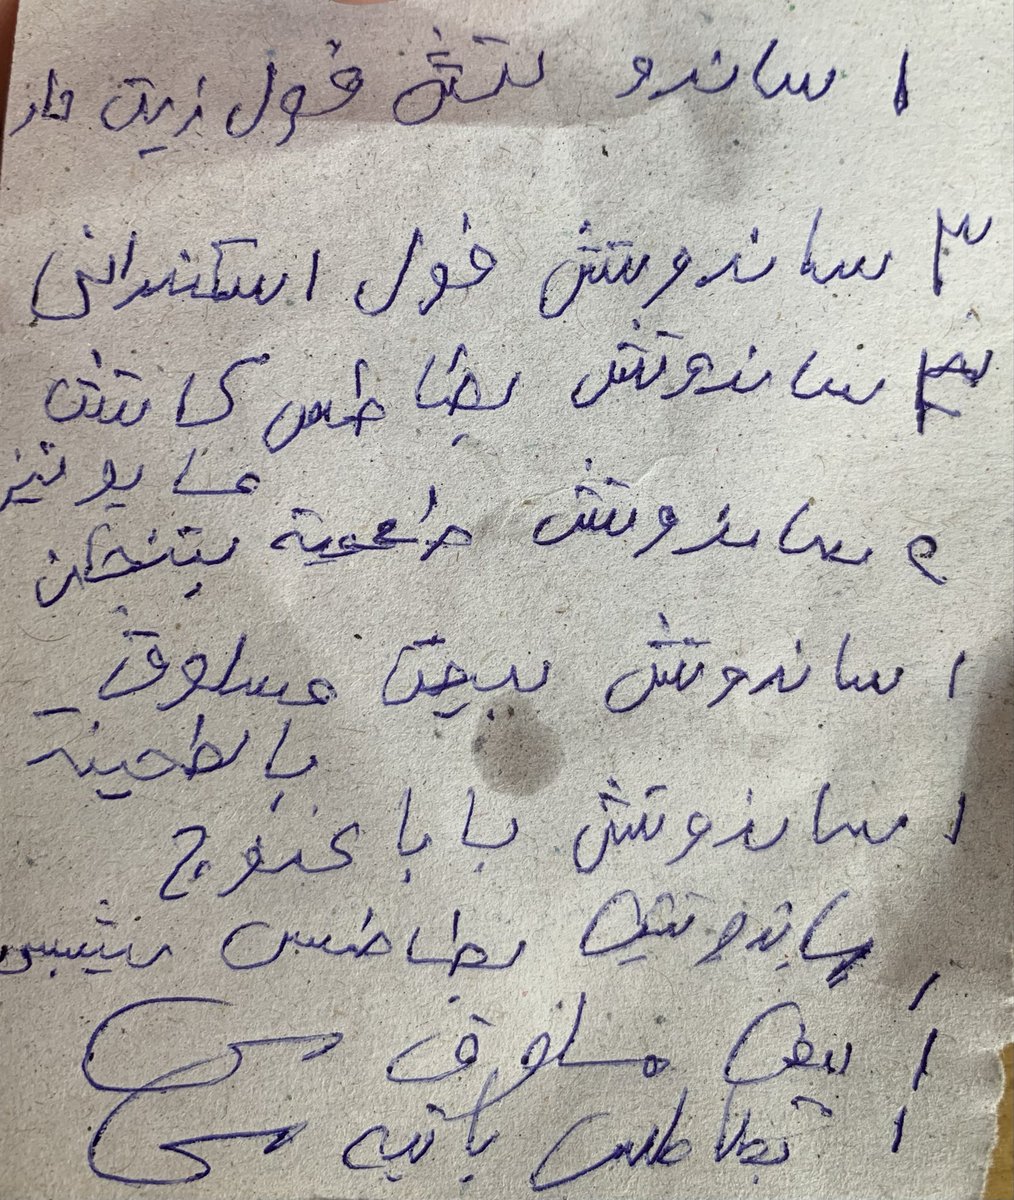 ١ ساندوتش فول زيت حار
٣ ساندوتش فول اسكندراني
٣ ساندوتش بطاطس كاتشب
مايونيز
ساندوتش طعمية بتنجان
١ ساندوتش بيض مسلوق
بالطحينة
١ ساندوتش بابا غنوج
١ ساندوتش بطاطس شيبسي
١ بيض مسلوق
١ بطاطس